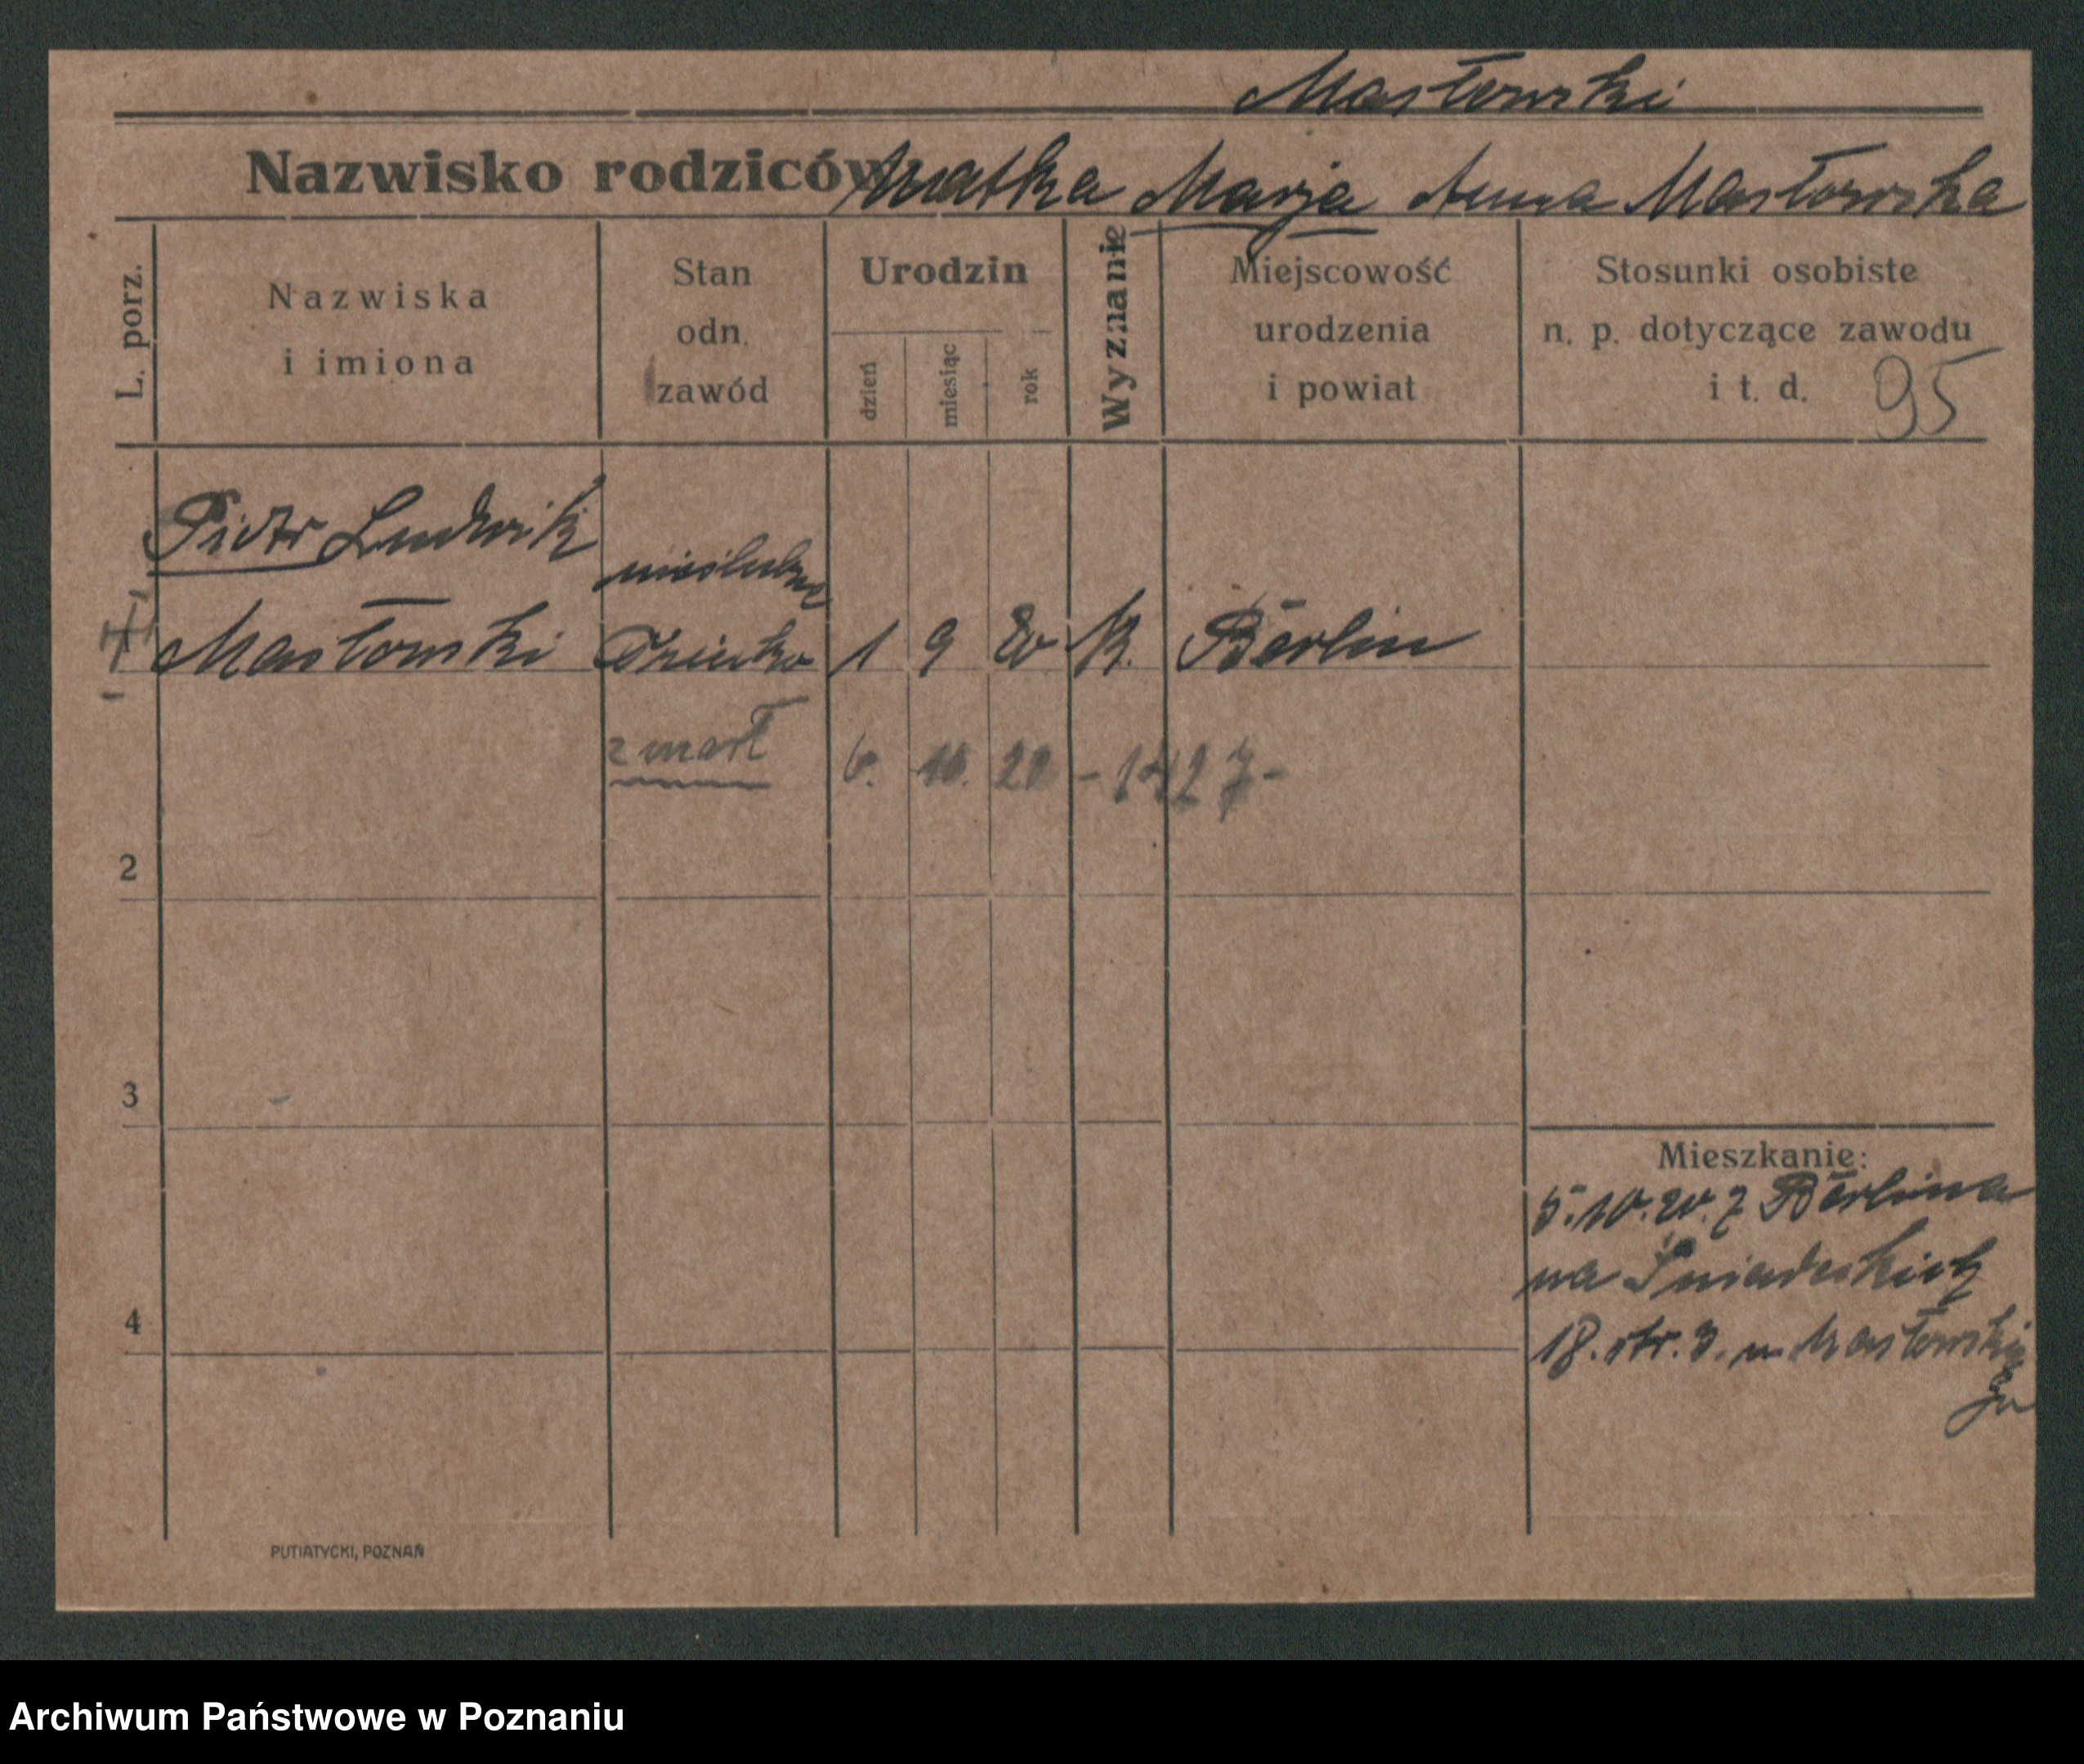 Masłowski
Nazwisko rodziców Matka Marja Anna Masłowska
L. porz.
Nazwiska
i imiona
Stan
odn.
zawód
Urodzin
dzień
miesiąc
rok
Wyznanie
Miejscowość
urodzenia
i powiat
Stosunki osobiste
n. p. dotyczące zawodu
i t. d.
95
Piotr Ludwik
Masłowski
nieślubne
Dziecko 1 9 20 K. Berlin
zmarł 6. 10. 20
2
3
4
Mieszkanie:
5.10.20. z Berlina
na Śniadeckich
18. ptr. 3. u Masłowskie
go
PUTIATYCKI, POZNAŃ
Archiwum Państwowe w Poznaniu